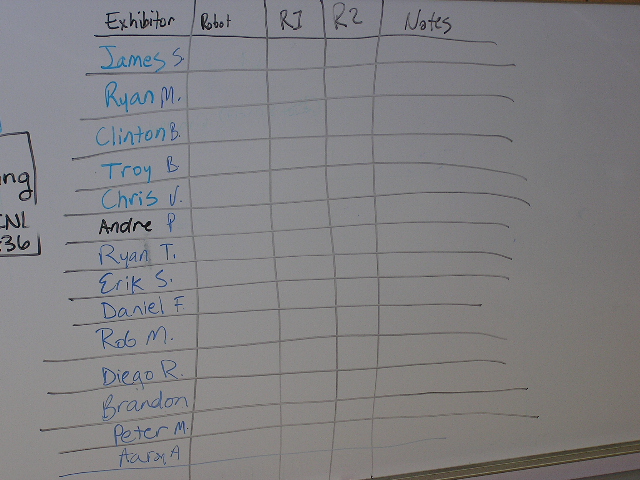 Exhibitor Robot R1 R2 Notes
James S.
Ryan M.
Clinton B.
Troy B
Chris V.
Andre P
Ryan T.
Erik S.
Daniel F.
Rob M.
Diego R.
Brandon
Peter M.
Aaron A
ng
INL
:36